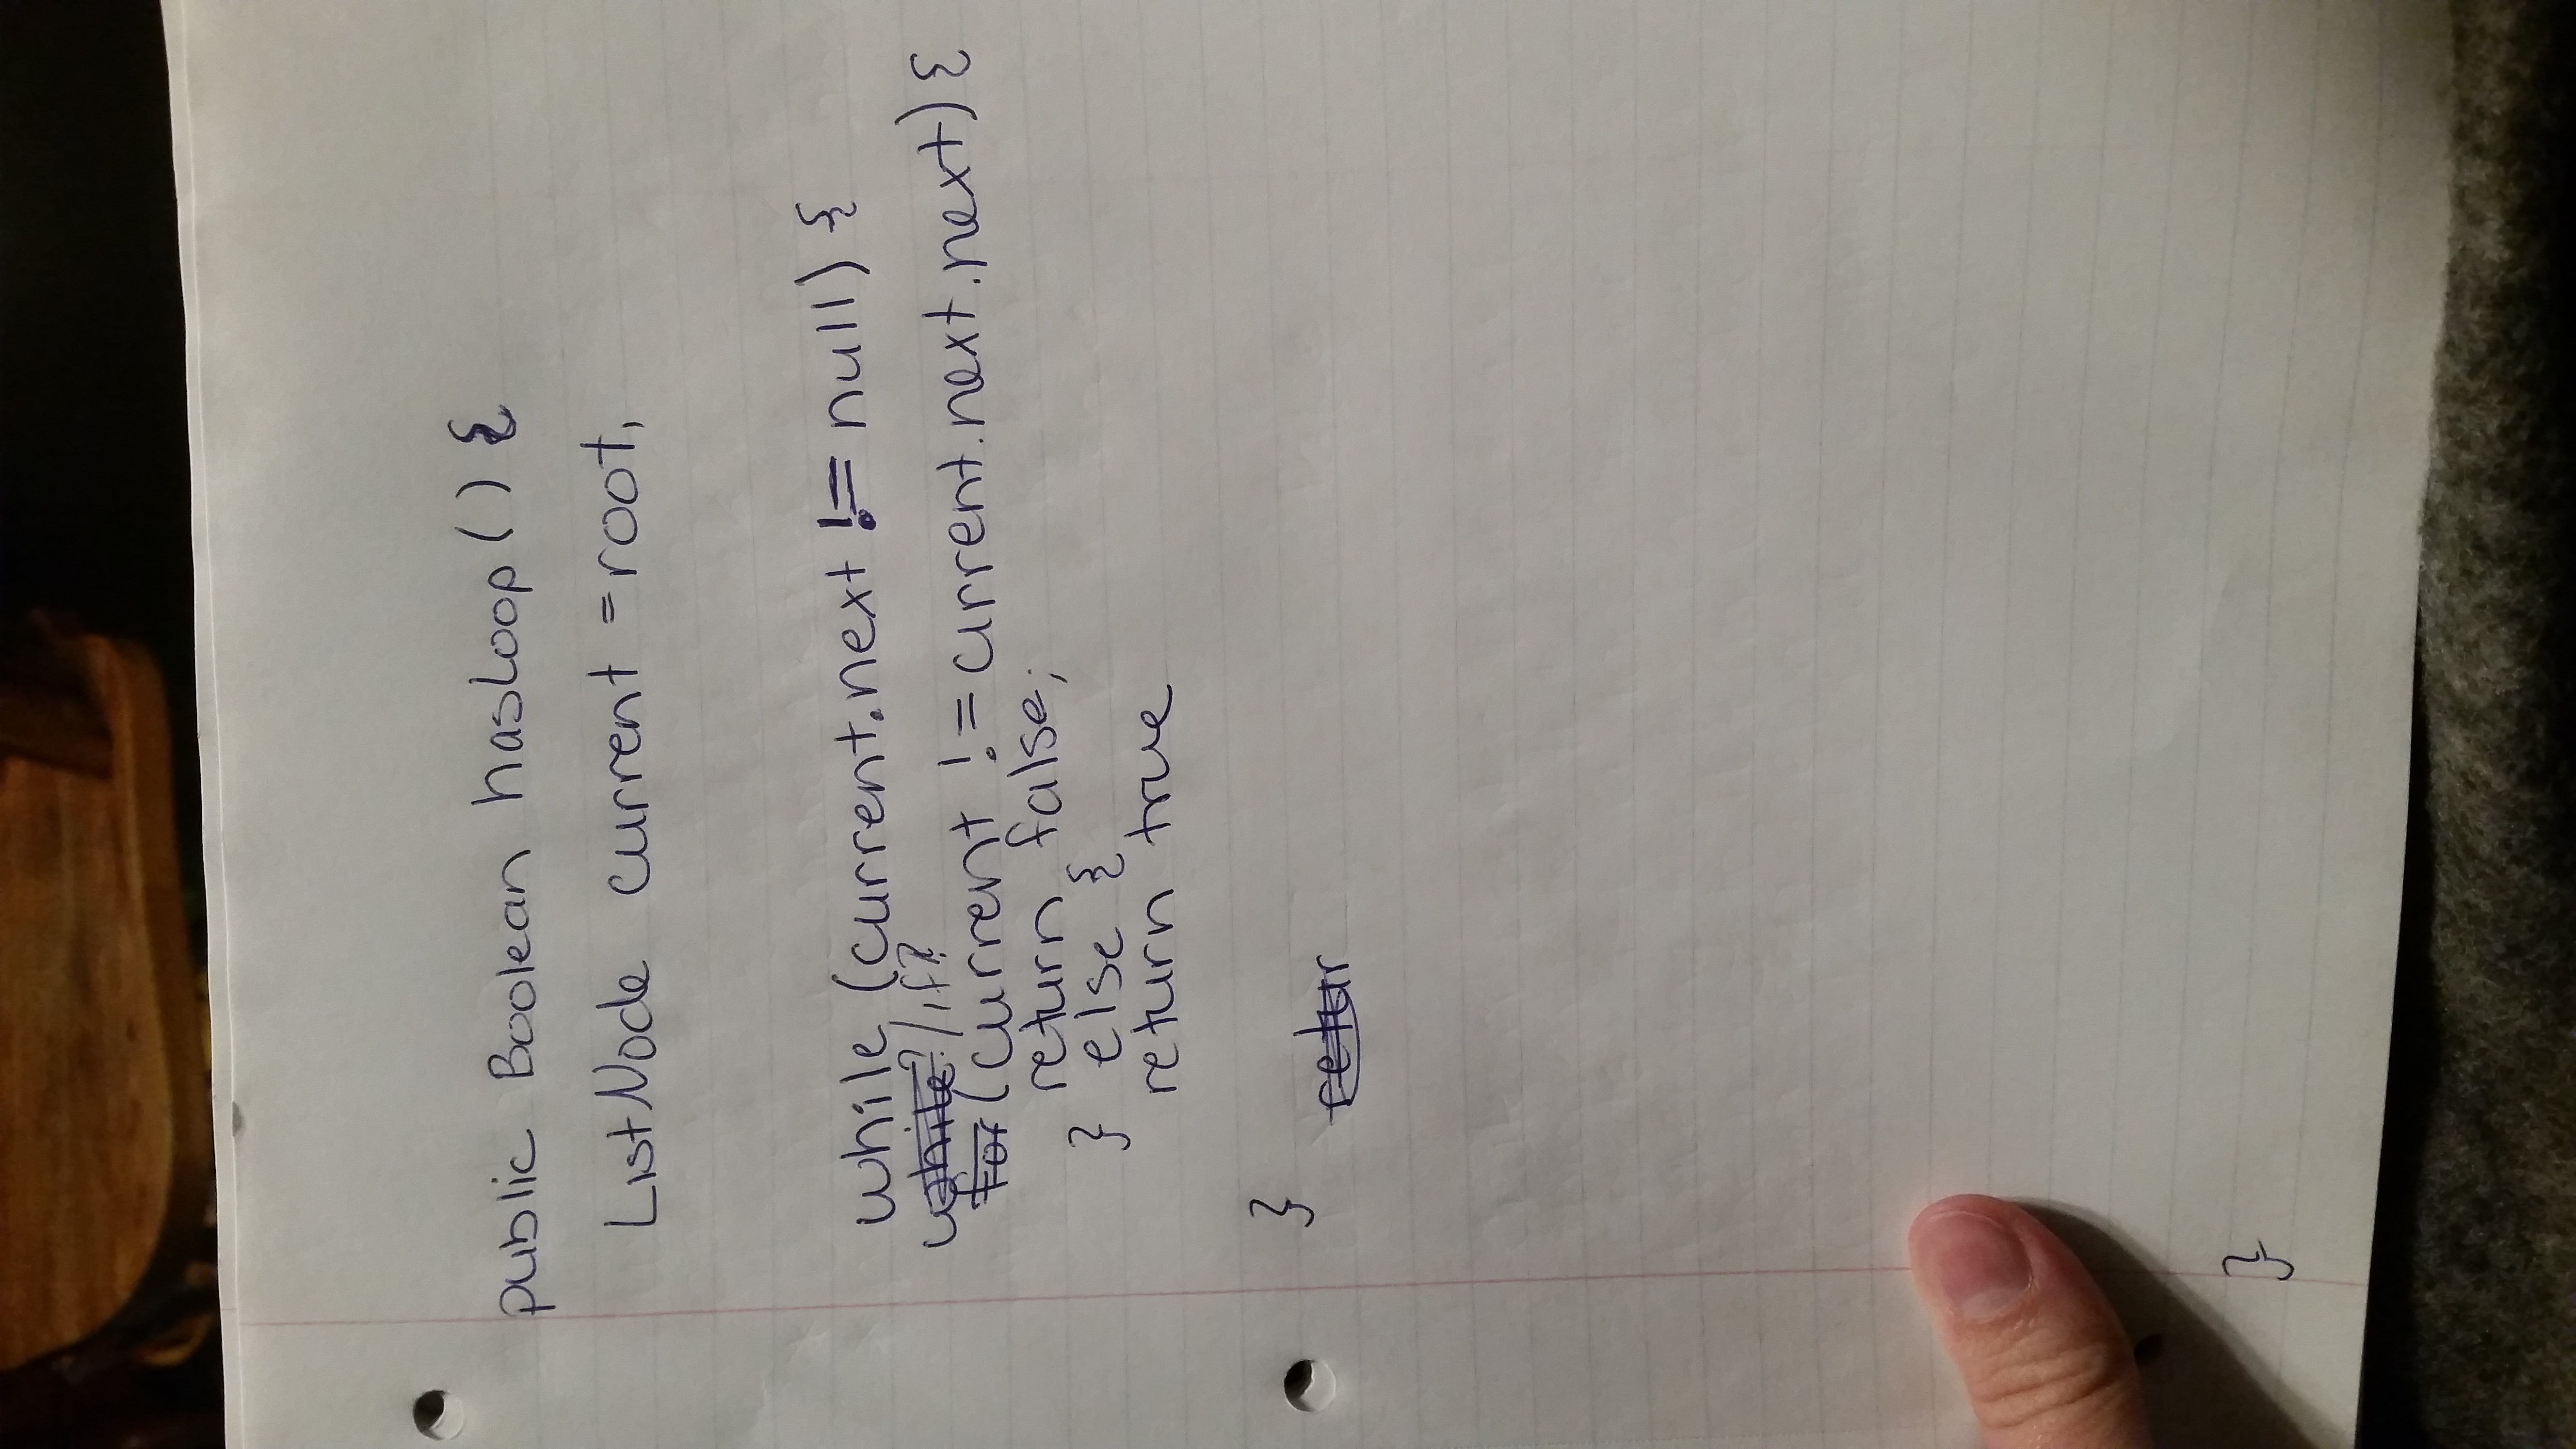 public Boolean hasLoop() {
ListNode current = root,
while (current.next != null) {
while?/if?
for (current != current.next.next) {
return false;
} else {
return true
}
retur
}